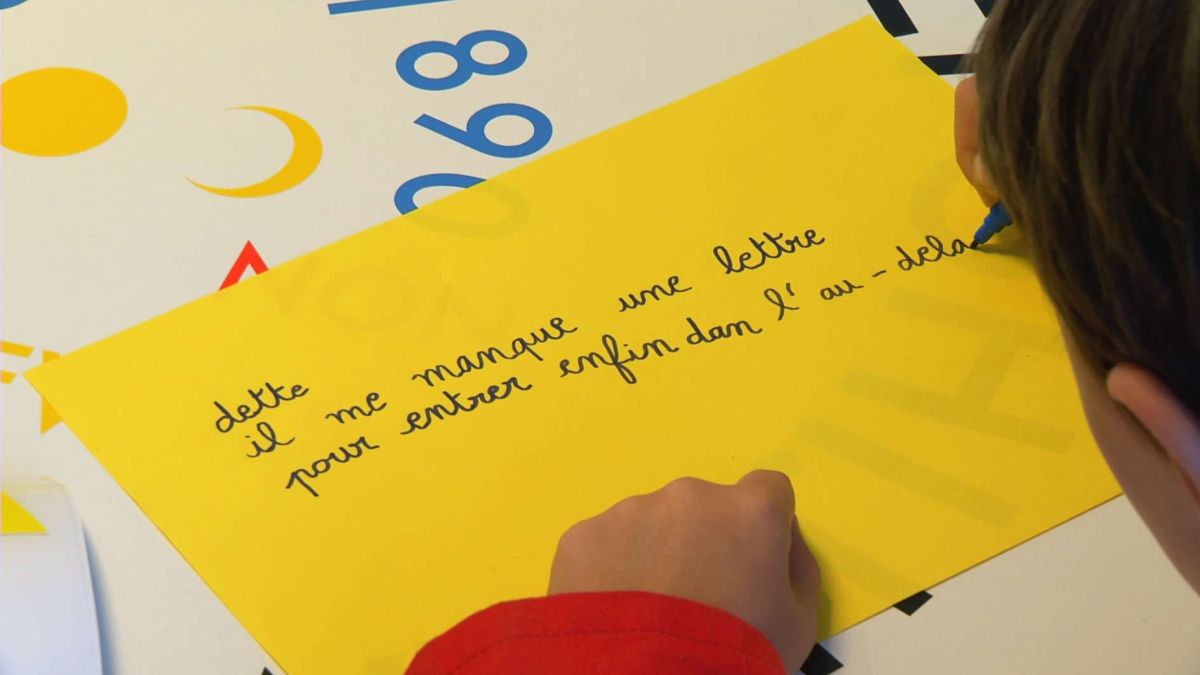 068
dette
il me manque une lettre
pour entrer enfin dan l'au-dela